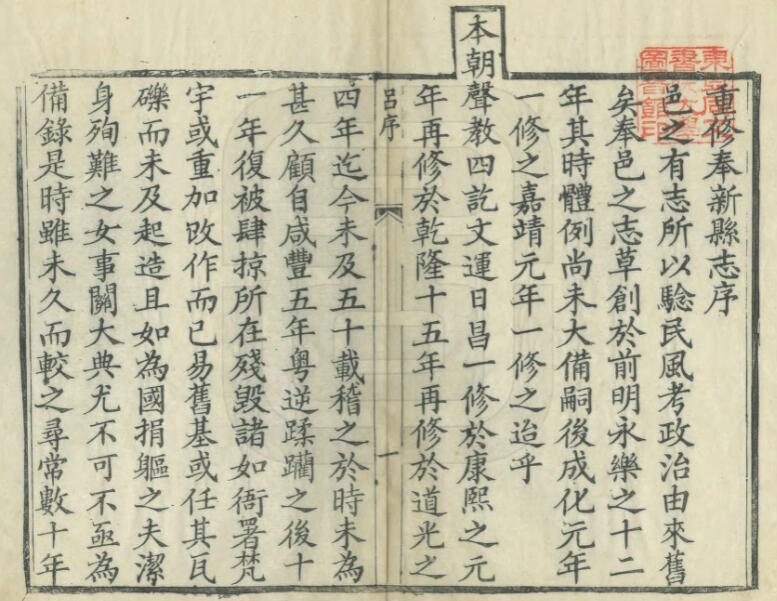 重修奉新縣志序
邑之有志所以驗民風考政治由來舊
矣奉邑之志草創於前明永樂之十二
年其時體例尚未大備嗣後成化元年
一修之嘉靖元年一修之迨乎
本朝聲教四訖文運日昌一修於康熙之元
年再修於乾隆十五年再修於道光之
呂序
一
四年迄今未及五十載稽之於時未為
甚久顧自咸豐五年粵逆蹂躪之後十
一年復被肆掠所在殘毀諸如衙署梵
宇或重加改作而已易舊基或任其瓦
礫而未及起造且如為國捐軀之夫潔
身殉難之女事關大典尤不可不亟為
備錄是時雖未久而較之尋常數十年